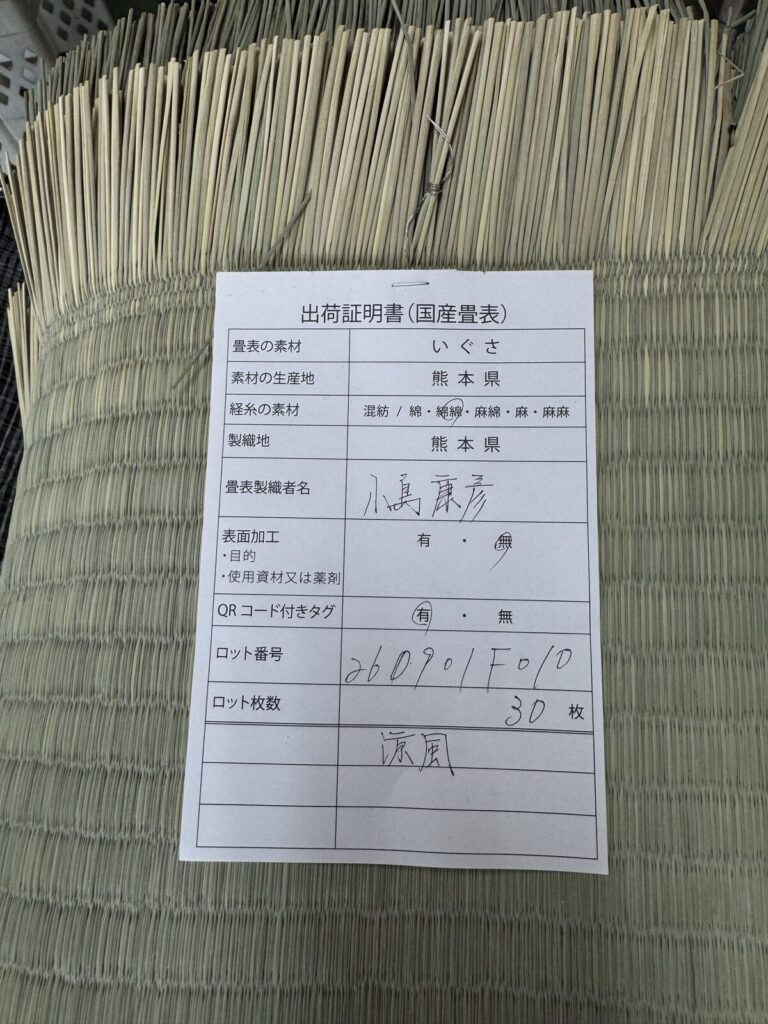 出荷証明書（国産畳表）
畳表の素材 いぐさ
素材の生産地 熊本県
経糸の素材 混紡 / 綿・綿綿・麻綿・麻・麻麻
製織地 熊本県
畳表製織者名 小島康彦
表面加工 有・無
・目的
・使用資材又は薬剤
QRコード付きタグ 有・無
ロット番号 260901F010
ロット枚数 30 枚
涼風